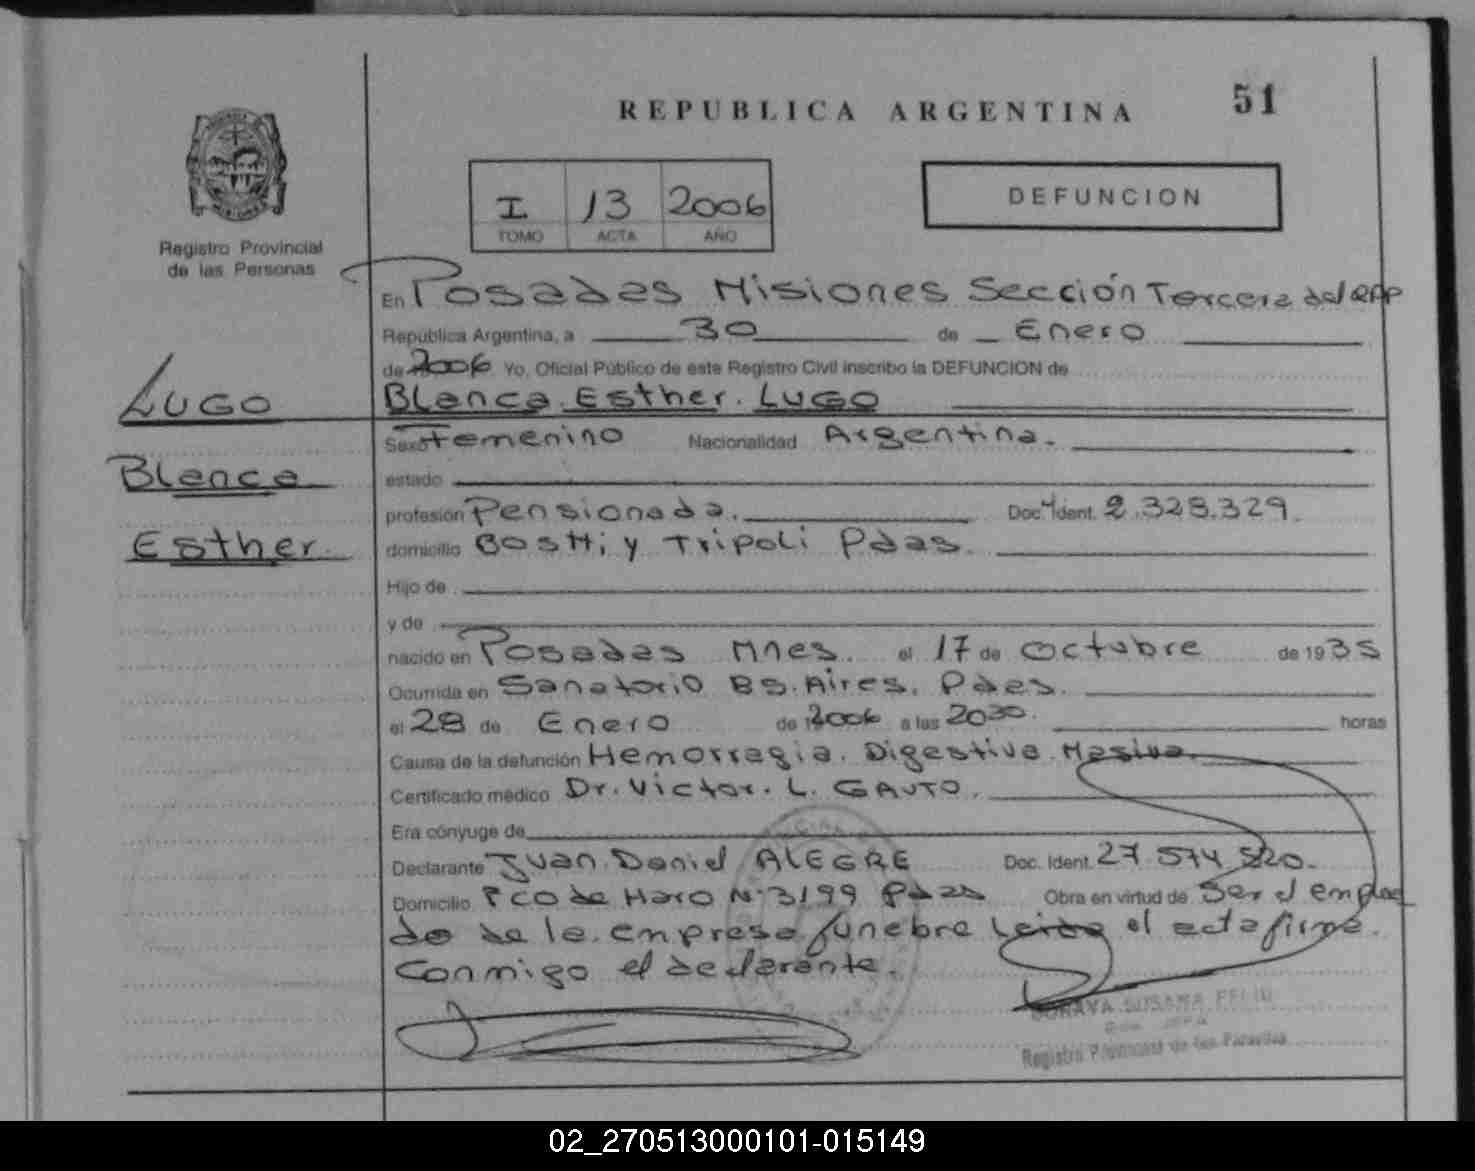 51
REPUBLICA ARGENTINA
I 13 2006
TOMO ACTA AÑO
DEFUNCION
Registro Provincial
de las Personas
En Posadas Misiones Sección Tercera del RPP
República Argentina, a 30 de Enero
de 2006 Yo, Oficial Público de este Registro Civil inscribo la DEFUNCION de
LUGO
Blanca Esther. LUGO
Sexo Femenino Nacionalidad Argentina.
Blanca
estado
profesión Pensionada. Doc. Ident. 2.328.329.
Esther.
domicilio Bostti y Tripoli Pdas.
Hijo de
y de
nacido en Posadas Mnes. el 17 de Octubre de 1935
Ocurrida en Sanatorio Bs. Aires. Pdas.
el 28 de Enero de 2006 a las 2030. horas
Causa de la defunción Hemorragia. Digestiva. Masiva.
Certificado médico Dr. Victor. L. GAUTO.
Era cónyuge de
Declarante Juan Daniel ALEGRE Doc. Ident. 27.574.520.
Domicilio Pco de Haro N° 3199 Pdas Obra en virtud de Ser el emplea
do de la empresa funebre Leida el acta firma
conmigo el declarante.
SORAYA SUSANA FELIU
Registro Provincial de las Personas
02_270513000101-015149